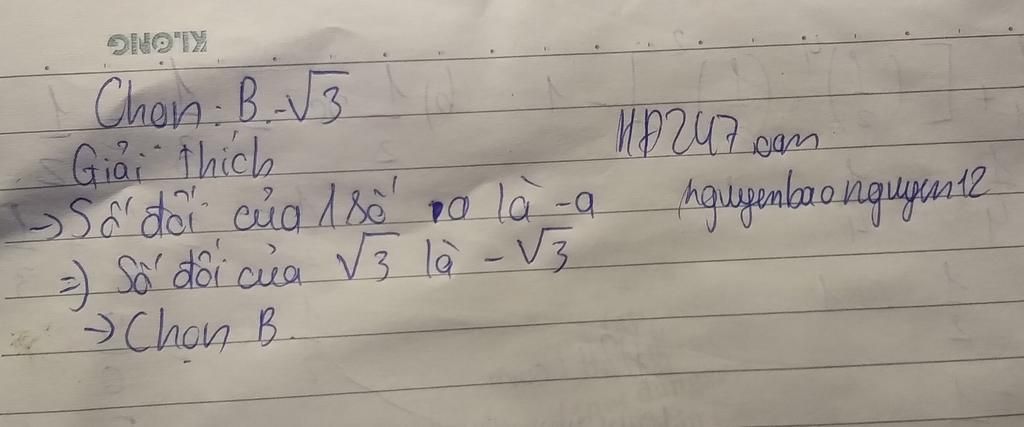 KLONG
Chọn: B. -√3
Giải thích
HĐ247.com
→ Số đối của 1 số a là -a
nguyenbaonguyen12
=) Số đối của √3 là -√3
→ Chọn B.